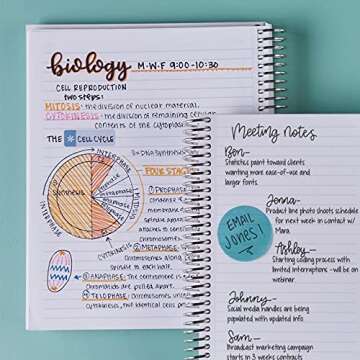 biology M-W-F 9:00-10:30
CELL REPRODUCTION
two steps:
MITOSIS: the division of nuclear material.
CYTOKINESIS: the division of remaining cellular
contents of the cytoplasm
THE CELL CYCLE
INTERPHASE
DNA Synthesis
FOUR STAG
① PROPHASE
② METAPHASE:
chromosomes along
to each half.
③ ANAPHASE: The centromeres
chromatids are pulled apart.
④ TELOPHASE:
Cytokinesis, but identical cells
CYTOKINESIS
INTERPHASE
MITOSIS
Meeting notes
Ben-
Statistics point toward clients
wanting more ease-of-use and
larger fonts.
Jenna-
Product line photo shoots schedule
for next week in contact w/
Mara.
EMAIL
JONES!
Ashley-
Starting calling process with
limited interruptions - will be on
weekend.
Johnny-
Social media handles are being
populated with updated info.
Sam-
Broadcast marketing campaign
starts in 3 weeks contracts